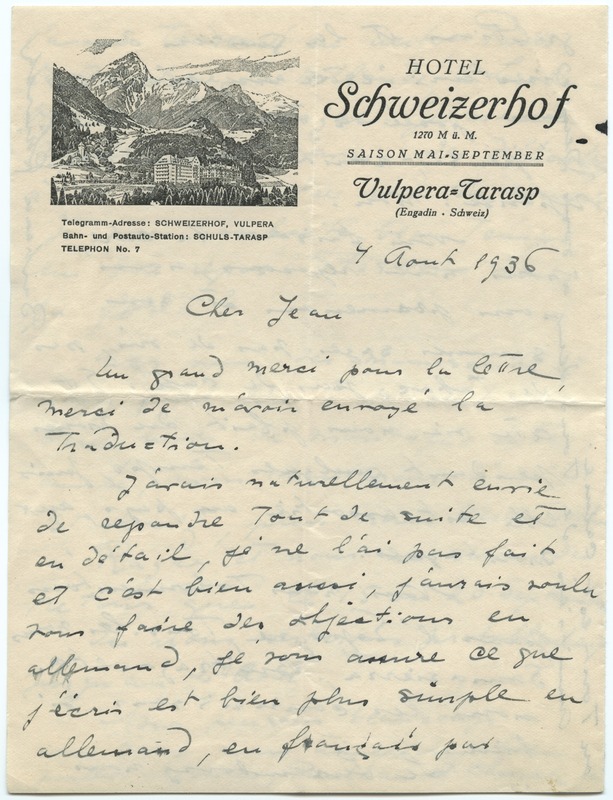 HOTEL
Schweizerhof
1270 M ü. M.
SAISON MAI-SEPTEMBER
Vulpera=Tarasp
(Engadin · Schweiz)
Telegramm-Adresse: SCHWEIZERHOF, VULPERA
Bahn- und Postauto-Station: SCHULS-TARASP
TELEPHON No. 7
4 Aout 1936
Cher Jean
Un grand merci pour la lettre,
merci de m'avoir envoyé la
Traduction.
J'avais naturellement envie
de repondre Tout de suite et
en détail, je ne l'ai pas fait
et c'est bien aussi, j'aurais voulu
vous faire des objections en
allemand, je vous assure ce que
j'écris est bien plus simple en
allemand, en français par